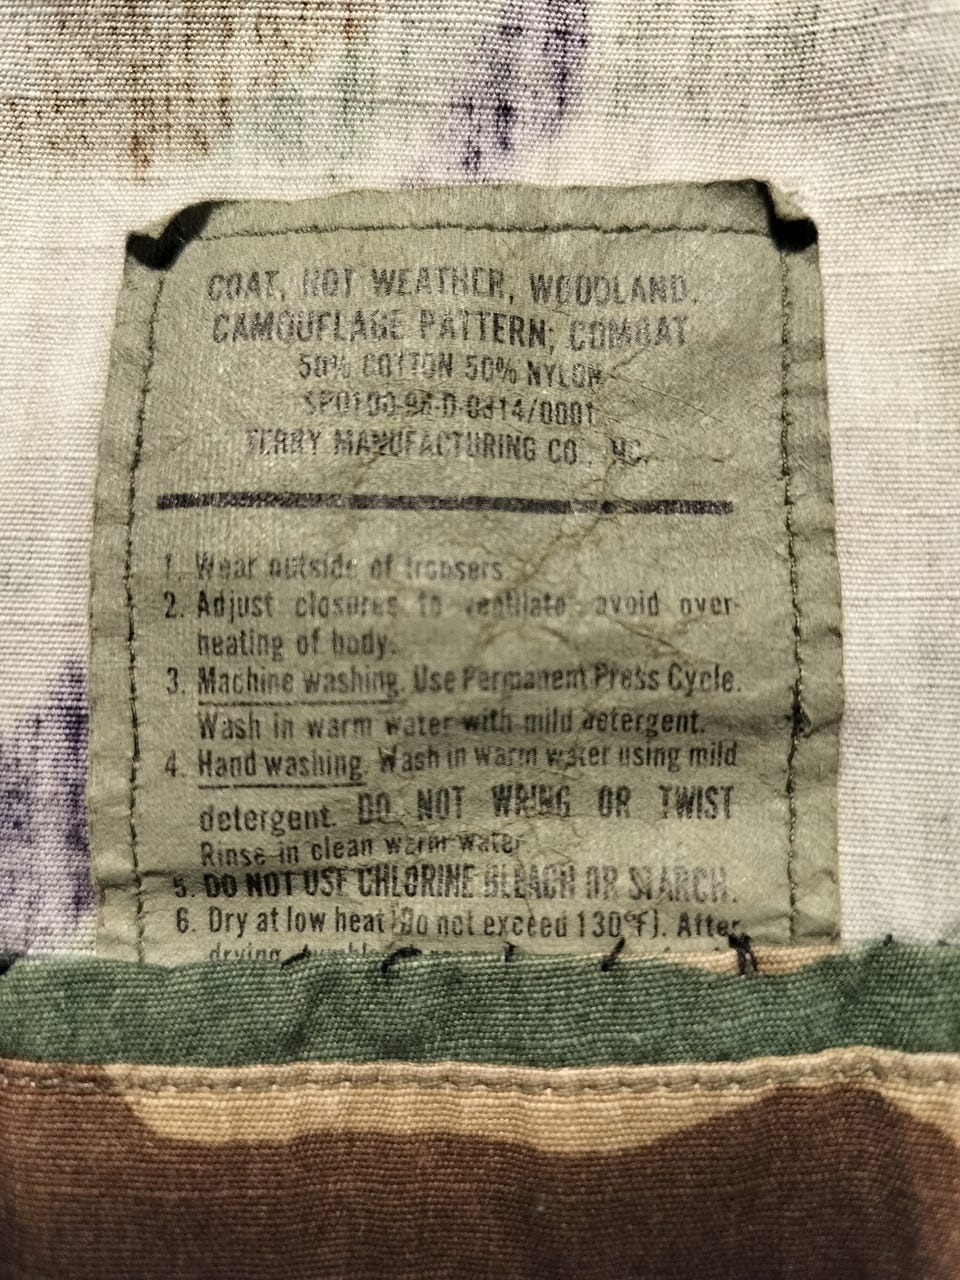 COAT, HOT WEATHER, WOODLAND
CAMOUFLAGE PATTERN; COMBAT
50% COTTON 50% NYLON
TERRY MANUFACTURING CO., INC.
1. Wear outside of trousers
2. Adjust closures to ventilate; avoid over-
heating of body.
3. Machine washing. Use Permanent Press Cycle.
Wash in warm water with mild detergent.
4. Hand washing. Wash in warm water using mild
detergent. DO NOT WRING OR TWIST
Rinse in clean warm water
5. DO NOT USE CHLORINE BLEACH OR STARCH.
6. Dry at low heat (Do not exceed 130°F). After
drying,